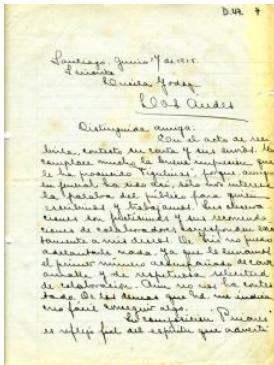 D.42 7
Santiago, Junio 17 de 1915.
Señorita
Lucila Godoy
Los Andes
Distinguida amiga:
Con el acto de reci
birla, contesto su carta y sus envíos. Me
complace mucho la buena impresión que
le ha producido "Figulinas", porque, aunque
en general ha sido así, sólo nos interesa
la palabra del público para quien
escribimos y trabajamos. Sus observa
ciones son justísimas y sus recomenda
ciones de colaboradores corresponden exac
tamente a mis deseos. De no puedo
adelantarle nada. Ya que le enviamos
el primer número acompañado de carta
amable y de respetuosa solicitud
de colaboración. Aun no nos ha contes
tado. De los demás que Ud. me indica
creo fácil conseguir algo.
Su composición
es reflejo fiel del espíritu que advertí